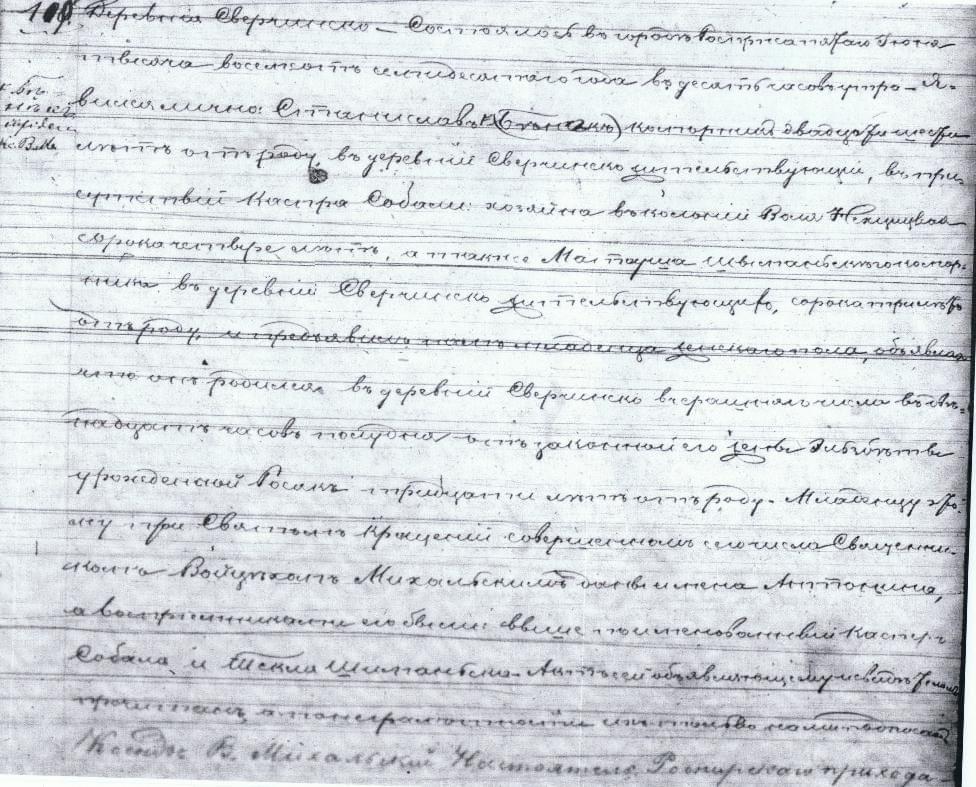 109. Деревня Сверчинско – Состоялось въ городѣ Роспржа пятаго Іюня
тысяча восемьсотъ семьдесятаго года въ десять часовъ утра – Я-
вился лично: Станиславъ коморникъ двадцати шести
лѣтъ отъ роду, въ деревнѣй Сверчинско жительствующій, въ при-
сутствій Каспра Собали: хозяина въ колоній Воля
сорока четырe лѣтъ, а также Матѣуша комор-
ника въ деревній Сверчинско жительствующихъ, сорока три лѣтъ
отъ роду, и предъявилъ намъ младенца женскаго пола, объявляя
что онъ родился въ деревній Сверчинско вчерашняго числа въ
надцать часовъ полудня отъ законной его жены Элзбѣты
урожденной Росякъ тридцати лѣтъ отъ роду. Младенцу это-
му при Святомъ Крещеній совершенномъ сего числа Священни-
комъ Войцѣхомъ Михальскимъ дано имена Антонина,
а воспріемниками его были: выше поименованный Касперъ
Собала и Текла Шиманьска. Актъ сей объявляющему и свидѣтелямъ
прочитанъ, а по неграмотности ихъ только нами подписанъ
Ксендзъ В. Михальскій Настоятель прихода –